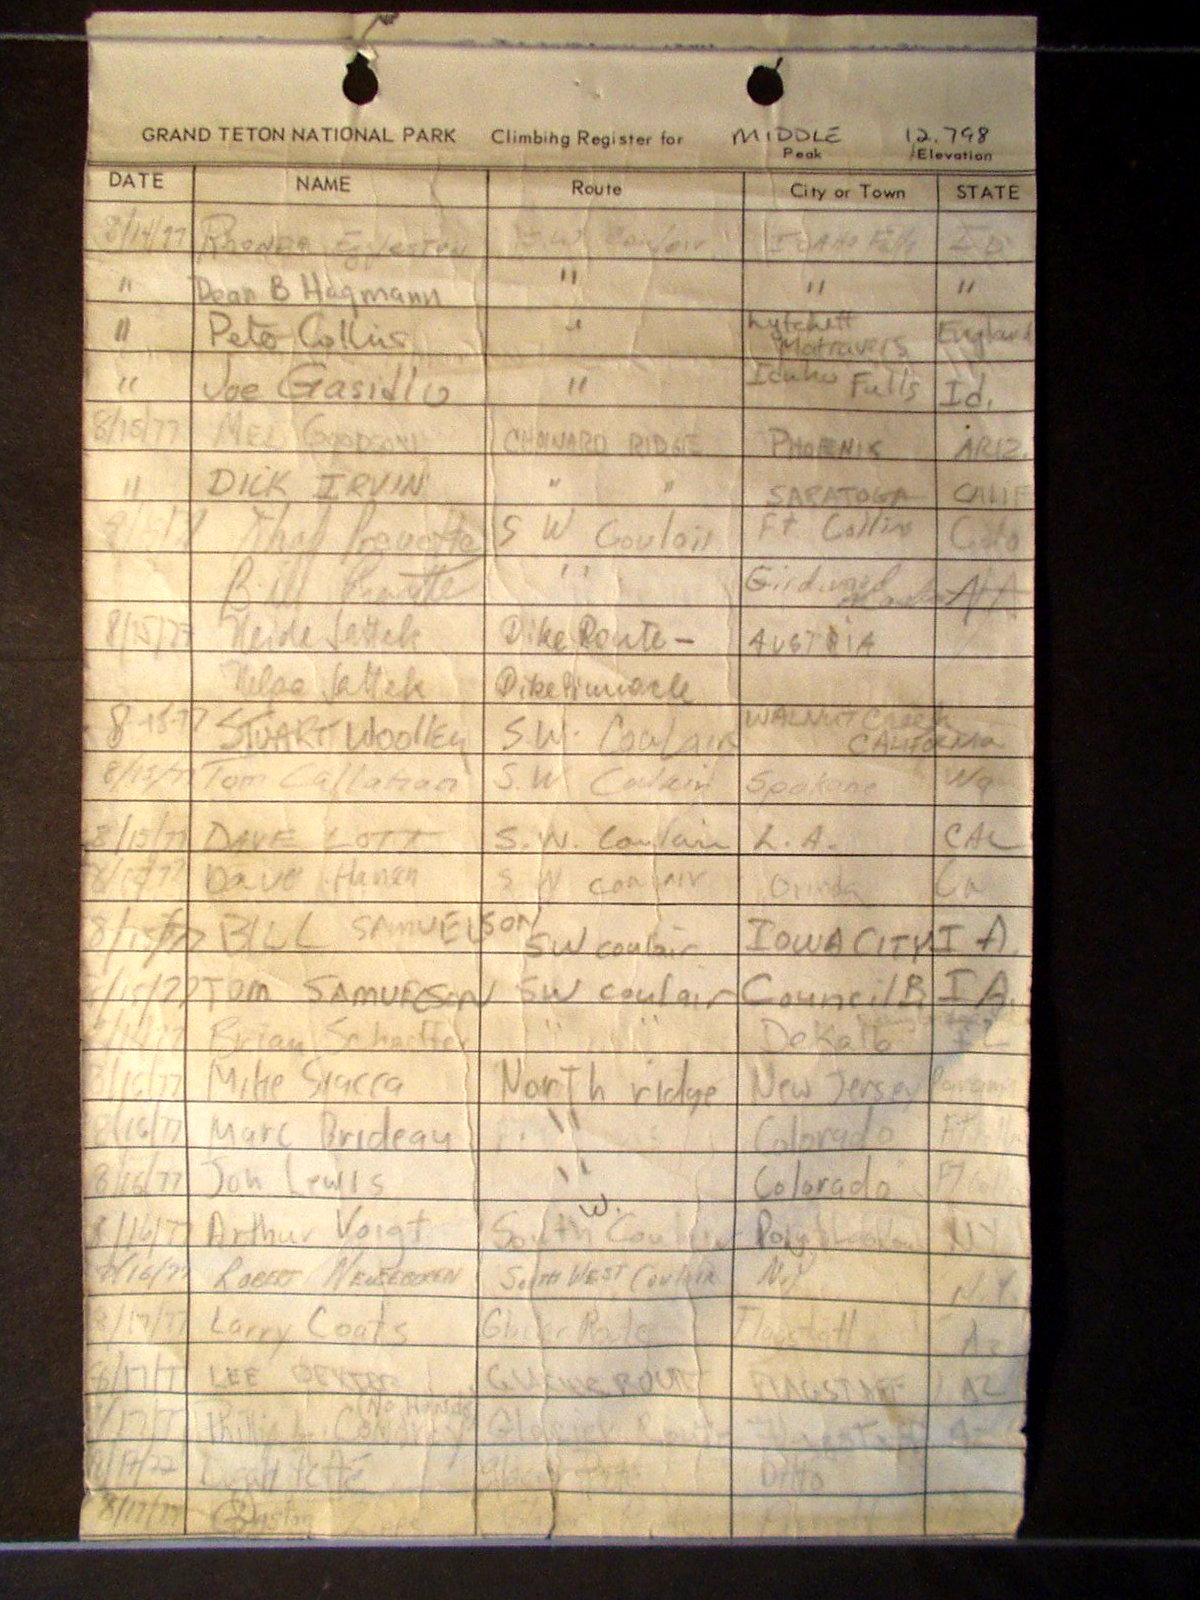 GRAND TETON NATIONAL PARK Climbing Register for MIDDLE 12.798
Peak Elevation
DATE NAME Route City or Town STATE
8/14/77 Rhonda S.W. Couloir Idaho Falls ID.
" Dean B Hagmann " " "
" Pete Collins " Lytchett Matravers England
" Joe Gasidlo " Idaho Falls Id.
8/15/77 MEL CHOINARD RIDGE PHOENIX ARIZ.
" DICK IRVIN " " SARATOGA CALIF
S W Couloir Ft Collins Colo
Bill " Girdwood
8/15/77 Heide Dike Route - AUSTRIA
Helga Dike Pinnacle
8-15-77 STUART WOOLLEY S.W. Couloir WALNUT Creek CALIFORNIA
8/15/77 Tom Callahan S.W Couloir Spokane Wa
8/15/77 DAVE LOTT S.W. Couloir L.A. CAL
Dave Hansen S W Couloir Orinda Ca
8/15/77 BILL SAMUELSON SW couloir IOWA CITY IA.
8/15/77 TOM SAMUELSON SW couloir Council B IA.
Brian Schaffer " " DeKalb IL
8/16/77 Mike Siacca North ridge New Jersey
8/16/77 Marc Brideau " Colorado
8/16/77 Jon Lewis " Colorado
W.
8/16/77 Arthur Voigt South Couloir NY
8/16/77 ROBERT SOUTH WEST Couloir N.Y. N.Y.
8/17/77 Larry Coats Glacier Route Flagstaff Az
8/17/77 LEE DEXTER GLACIER ROUTE FLAGSTAFF AZ
(No Hands)
8/17/77 Phillip L. Glacier Route Flagstaff
Ditto
8/17/77